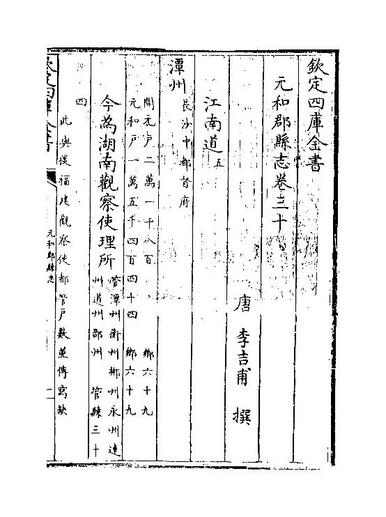 欽定四庫全書
元和郡縣志卷三十
唐 李吉甫 撰
江南道五
潭州 長沙 中都督府
開元戶二萬一千八百 鄉六十九
元和戶一萬五千四百四十四 鄉六十九
今為湖南觀察使理所 管潭州衡州郴州永州連
州道州邵州 管縣三十
四
此與後福建觀察使都管戶數並傳寫缺
元和郡縣志